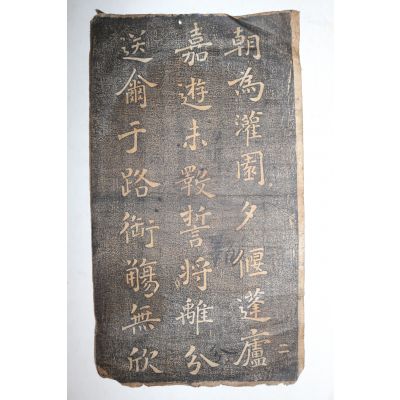 朝為灌園夕偃蓬廬
二
嘉遊未斁誓將離分
送爾于路銜觴無欣